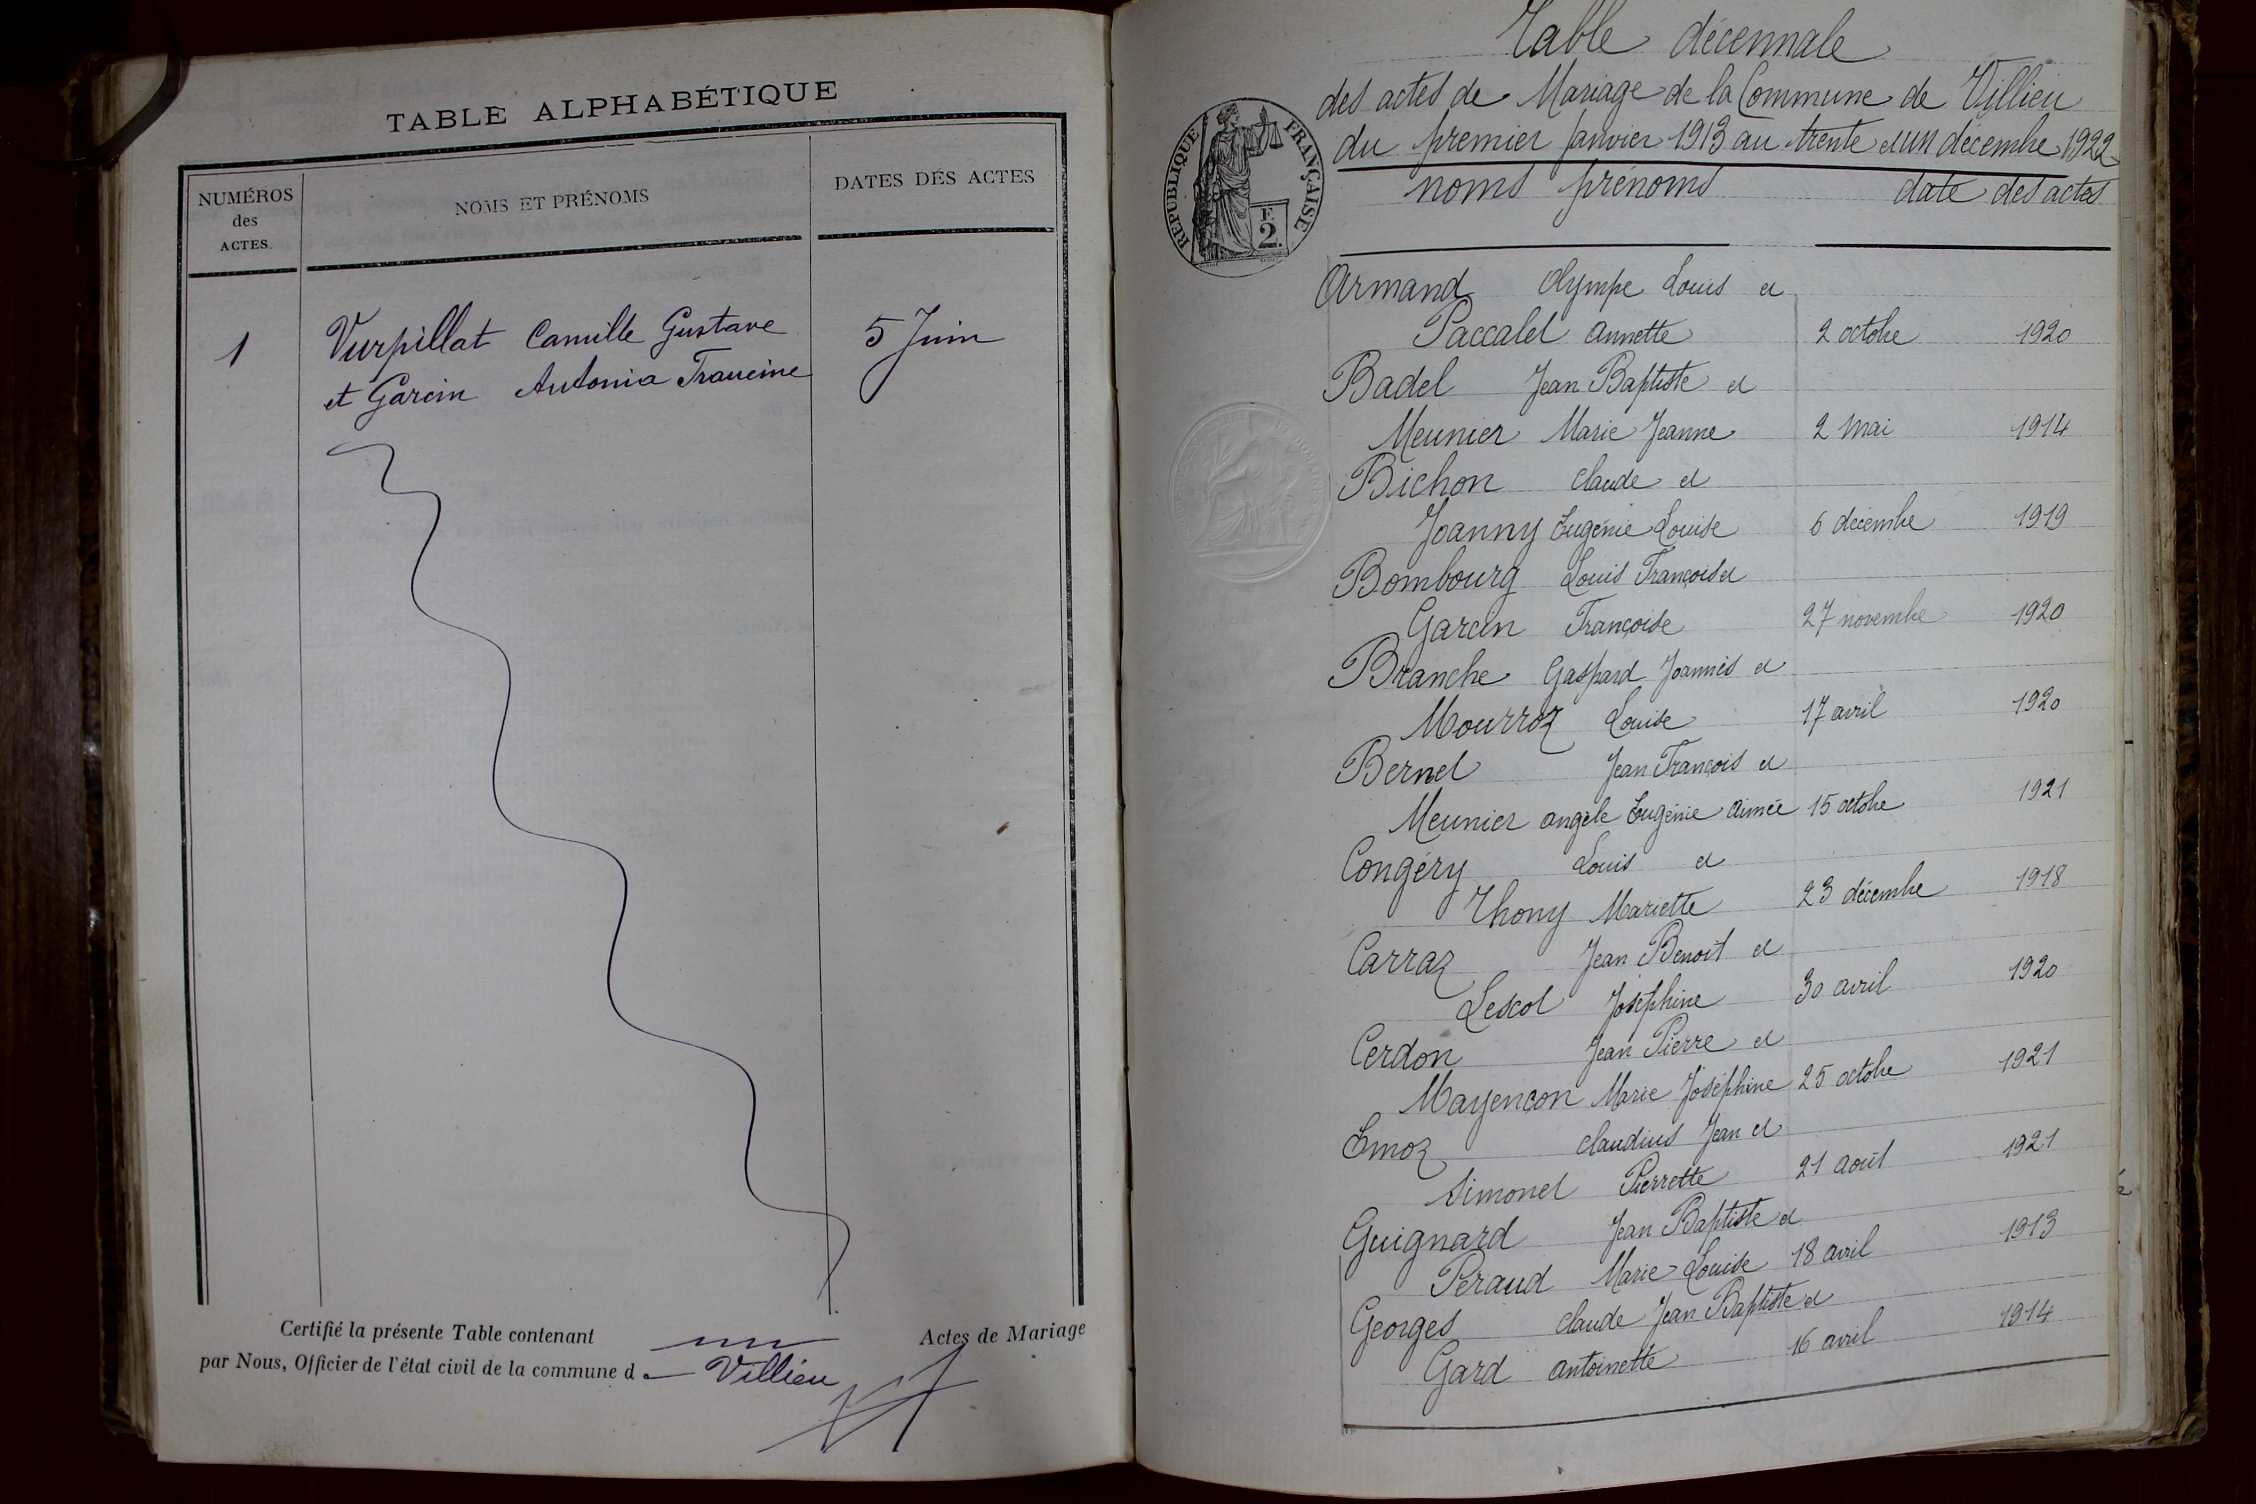 TABLE ALPHABÉTIQUE
NUMÉROS
des
ACTES.
NOMS ET PRÉNOMS
DATES DES ACTES
1
Vurpillat Camille Gustave
5 Juin
et Garcin Antonia Francine
Certifié la présente Table contenant un Actes de Mariage
par Nous, Officier de l'état civil de la commune d Villieu
Table décennale
des actes de Mariage de la Commune de Villieu
du premier Janvier 1913 au trente et un décembre 1922
RÉPUBLIQUE FRANÇAISE
F.
2.
noms prénoms date des actes
Armand Olympe Louis et
Paccalet Annette 2 octobre 1920
Badel Jean Baptiste et
Meunier Marie Jeanne 2 mai 1914
Bichon Claude et
Joanny Eugénie Louise 6 décembre 1919
Bombourg Louis François et
Garcin Françoise 27 novembre 1920
Branche Gaspard Joannès et
Mourroz Louise 17 avril 1920
Bernet Jean François et
Meunier Angèle Eugénie Aimée 15 octobre 1921
Congéry Louis et
Thony Mariette 23 décembre 1918
Carraz Jean Benoît et
Lescot Joséphine 30 avril 1920
Cerdon Jean Pierre et
Mayençon Marie Joséphine 25 octobre 1921
Emoz Claudius Jean et
Simonet Pierrette 21 août 1921
Guignard Jean Baptiste et
Peraud Marie Louise 18 avril 1913
Georges Claude Jean Baptiste et
Gard Antoinette 16 avril 1914